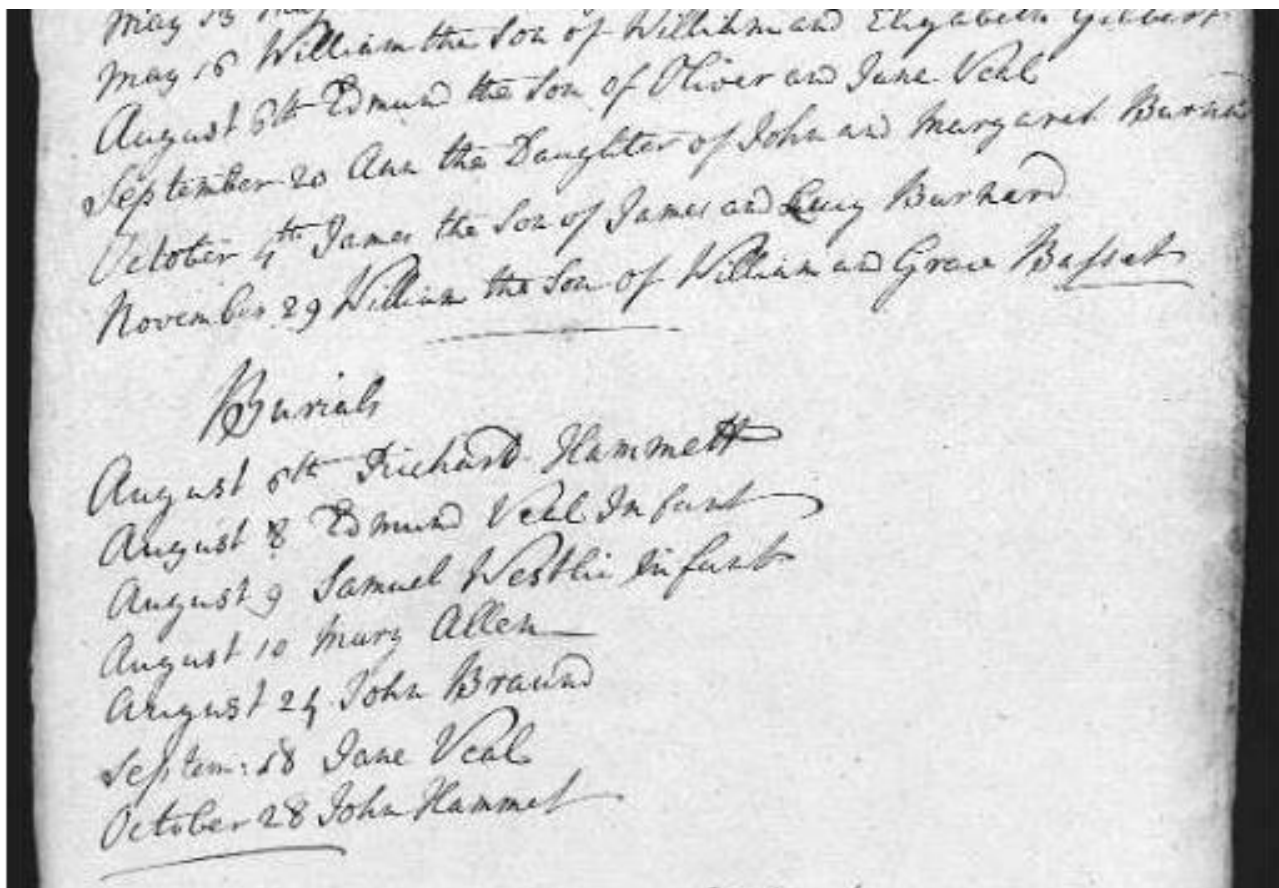 May 13
May 16 William the Son of William and Elizabeth Gilbert
August 6th Edmund the Son of Oliver and Jane Veal
September 20 Ann the Daughter of John and Margaret
October 4th James the Son of James and Lucy Burnard
November 29 William the Son of William and Grace Bassat
Burials
August 6th Richard Hammett
August 8 Edmund Veal Infant
August 9 Samuel Westlin Infant
August 10 Mary Allen
August 24 John Braund
Septem: 18 Jane Veal
October 28 John Hammet